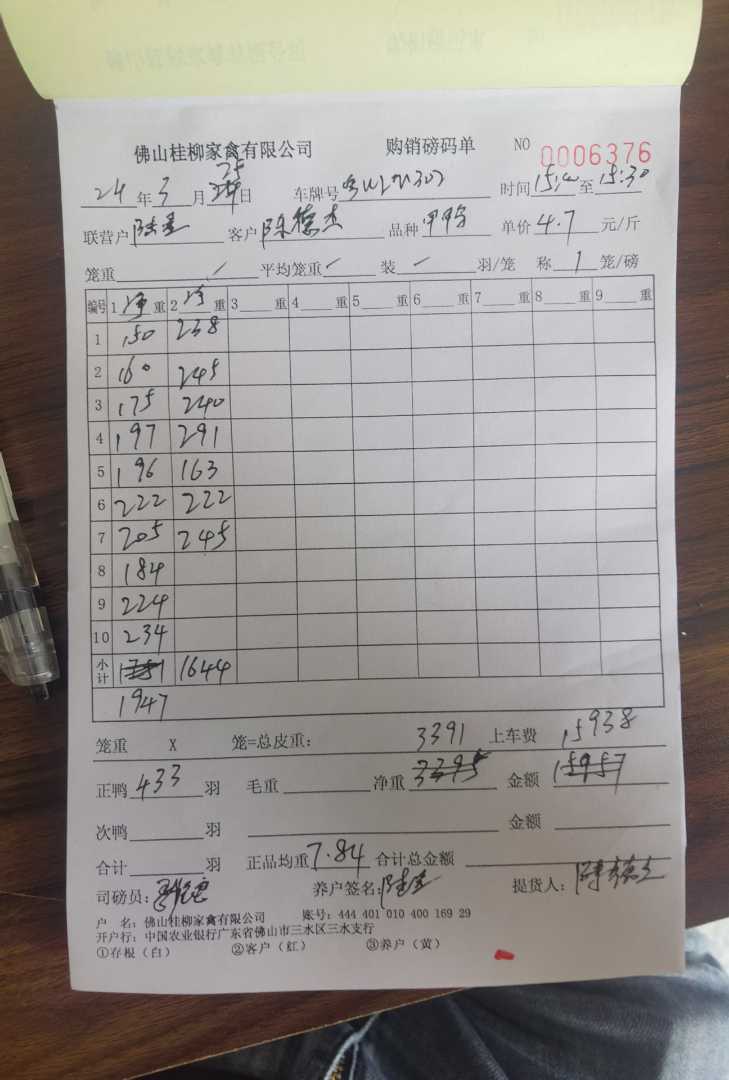 佛山桂柳家禽有限公司 购销磅码单 NO 0006376
24年3月25日 车牌号 时间 至15:30
联营户 客户陈德杰 品种 单价4.7元/斤
笼重 / 平均笼重 / 装 / 羽/笼 称 1 笼/磅
编号 1净重 2净重 3重 4重 5重 6重 7重 8重 9重
1 150 238
2 160 245
3 175 240
4 197 291
5 196 163
6 222 222
7 205 245
8 184
9 224
10 234
小计 1751 1644
1947
笼重 X 笼=总皮重: 3391 上车费 15938
正鸭433羽 毛重 净重3395 金额15957
次鸭 羽 金额
合计 羽 正品均重7.84 合计总金额
司磅员: 养户签名: 提货人:陈德杰
户 名:佛山桂柳家禽有限公司 账号:444 401 010 400 169 29
开户行:中国农业银行广东省佛山市三水区三水支行
①存根(白) ②客户(红) ③养户(黄)